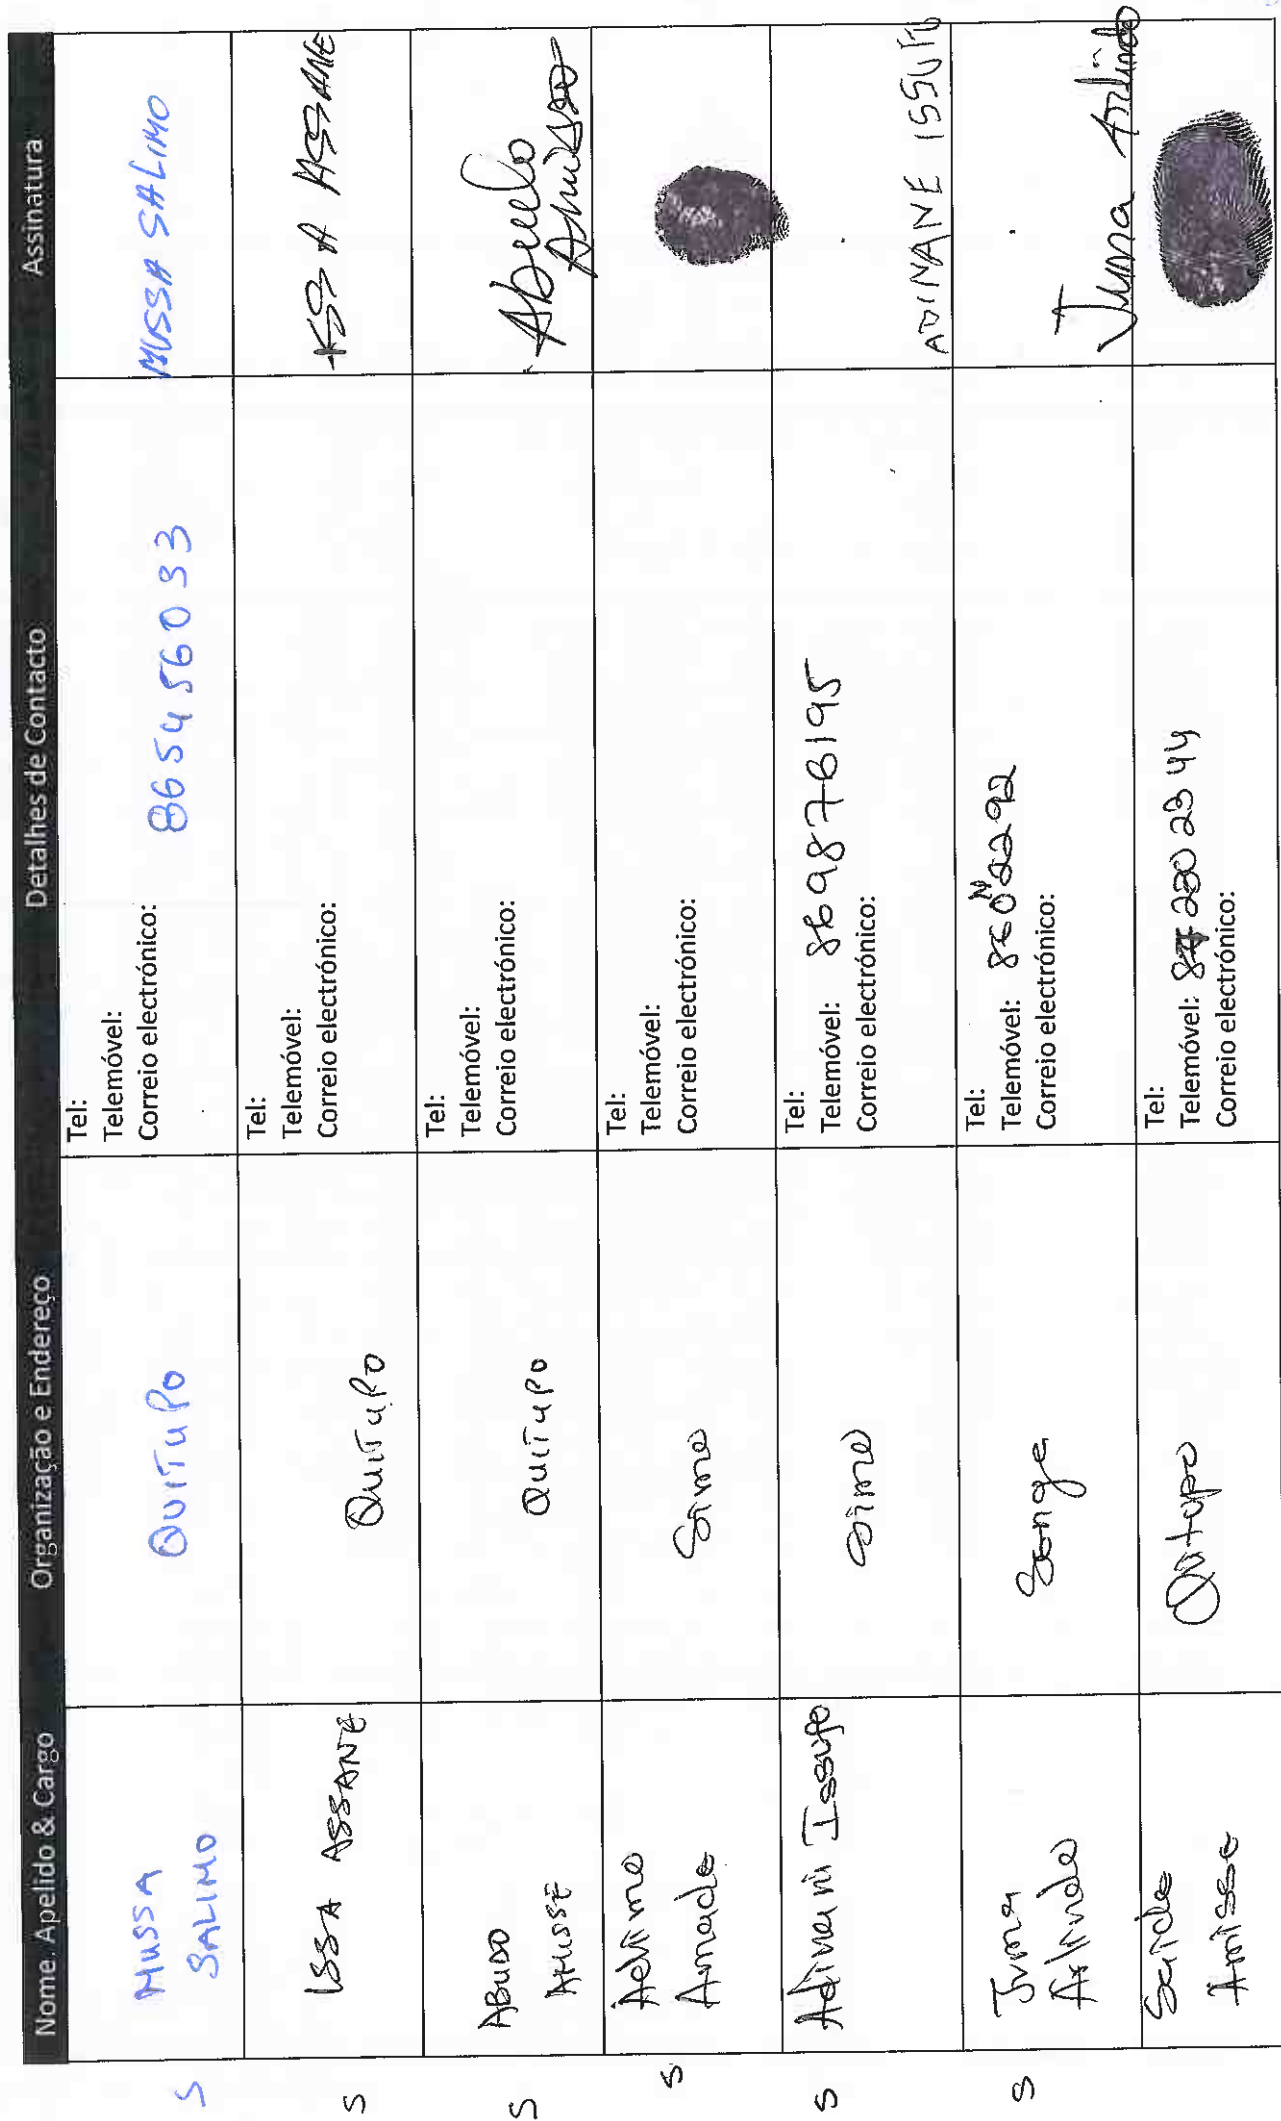 Nome, Apelido & Cargo Organização e Endereço Detalhes de Contacto Assinatura
S
MUSSA
SALIMO
QUITUPO
Tel:
Telemóvel:
Correio electrónico:
865456033
MUSSA SALIMO
S
ISSA ASSANE
QUITUPO
Tel:
Telemóvel:
Correio electrónico:
ISSA ASSANE
S
ABUDO
AMISSE
QUITUPO
Tel:
Telemóvel:
Correio electrónico:
Abudo
S
Amade
Tel:
Telemóvel:
Correio electrónico:
S
Issufo
Tel:
Telemóvel: 869876195
Correio electrónico:
ADINANE ISSUFO
S
Juma
Arlindo
Senga
Tel:
Telemóvel:
Correio electrónico:
Juma Arlindo
Saide
Amisse
Quitupo
Tel:
Telemóvel:
Correio electrónico: